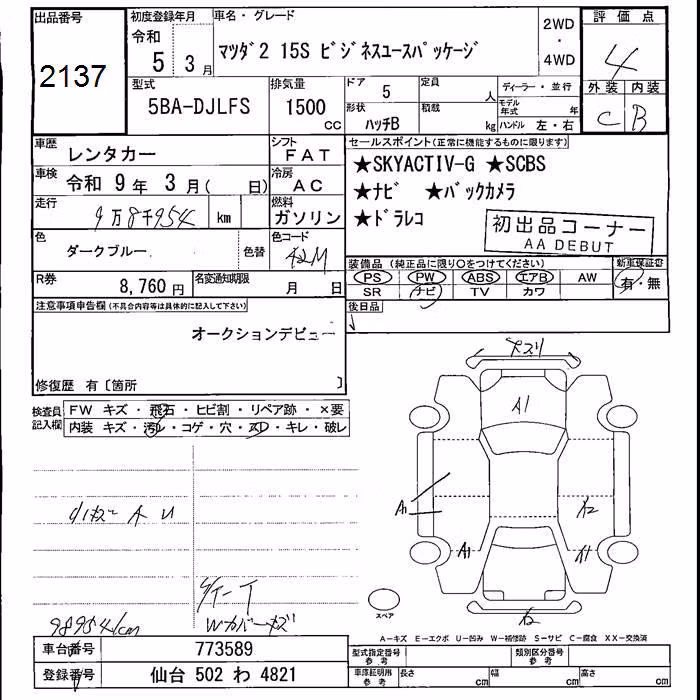 出品番号
2137
初度登録年月
令和
5年 3月
車名・グレード
マツダ2 15S ビジネスユースパッケージ
2WD
・
4WD
評価点
4
外装 内装
C B
型式
5BA-DJLFS
排気量
1500
cc
ドア
5
定員
人
形状
ハッチB
積載
kg
ディーラー・並行
モデル年式 年
ハンドル 左・右
車歴
レンタカー
シフト
FAT
車検
令和 9年 3月( 日)
冷房
AC
走行
9万8千954
km
燃料
ガソリン
色
ダークブルー
色替
色コード
42M
R券
8,760円
名変通知期限
月 日
セールスポイント(正常に機能するものに限ります)
★SKYACTIV-G ★SCBS
★ナビ ★バックカメラ
★ドラレコ
初出品コーナー
AA DEBUT
装備品(純正品に限り○をつけてください)
PS PW ABS エアB AW
SR ナビ TV カワ
新車保証書
有・無
後日品
注意事項申告欄(不具合内容等は具体的に記入して下さい)
オークションデビュー
修復歴 有〔箇所 〕
検査員記入欄
FW キズ・飛石・ヒビ割・リペア跡・×要
内装 キズ・汚レ・コゲ・穴・スレ・キレ・破レ
スズリ
A1
A1
A2
A1
A1
A2
小キズ A U
Wカバーキズ
98954km
スペア
A-キズ E-エクボ U-凹み W-補修跡 S-サビ C-腐食 XX-交換済
車台番号
773589
登録番号
仙台 502 わ 4821
型式指定番号
参考
類別区分番号
参考
車庫証明用
参考
長さ cm
幅 cm
高さ cm